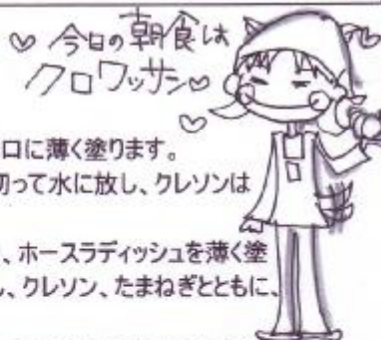 ♡ 今日の朝食は
クロワッサン♡
口に薄く塗ります。
切って水に放し、クレソンは
、ホースラディッシュを薄く塗
し、クレソン、たまねぎとともに、